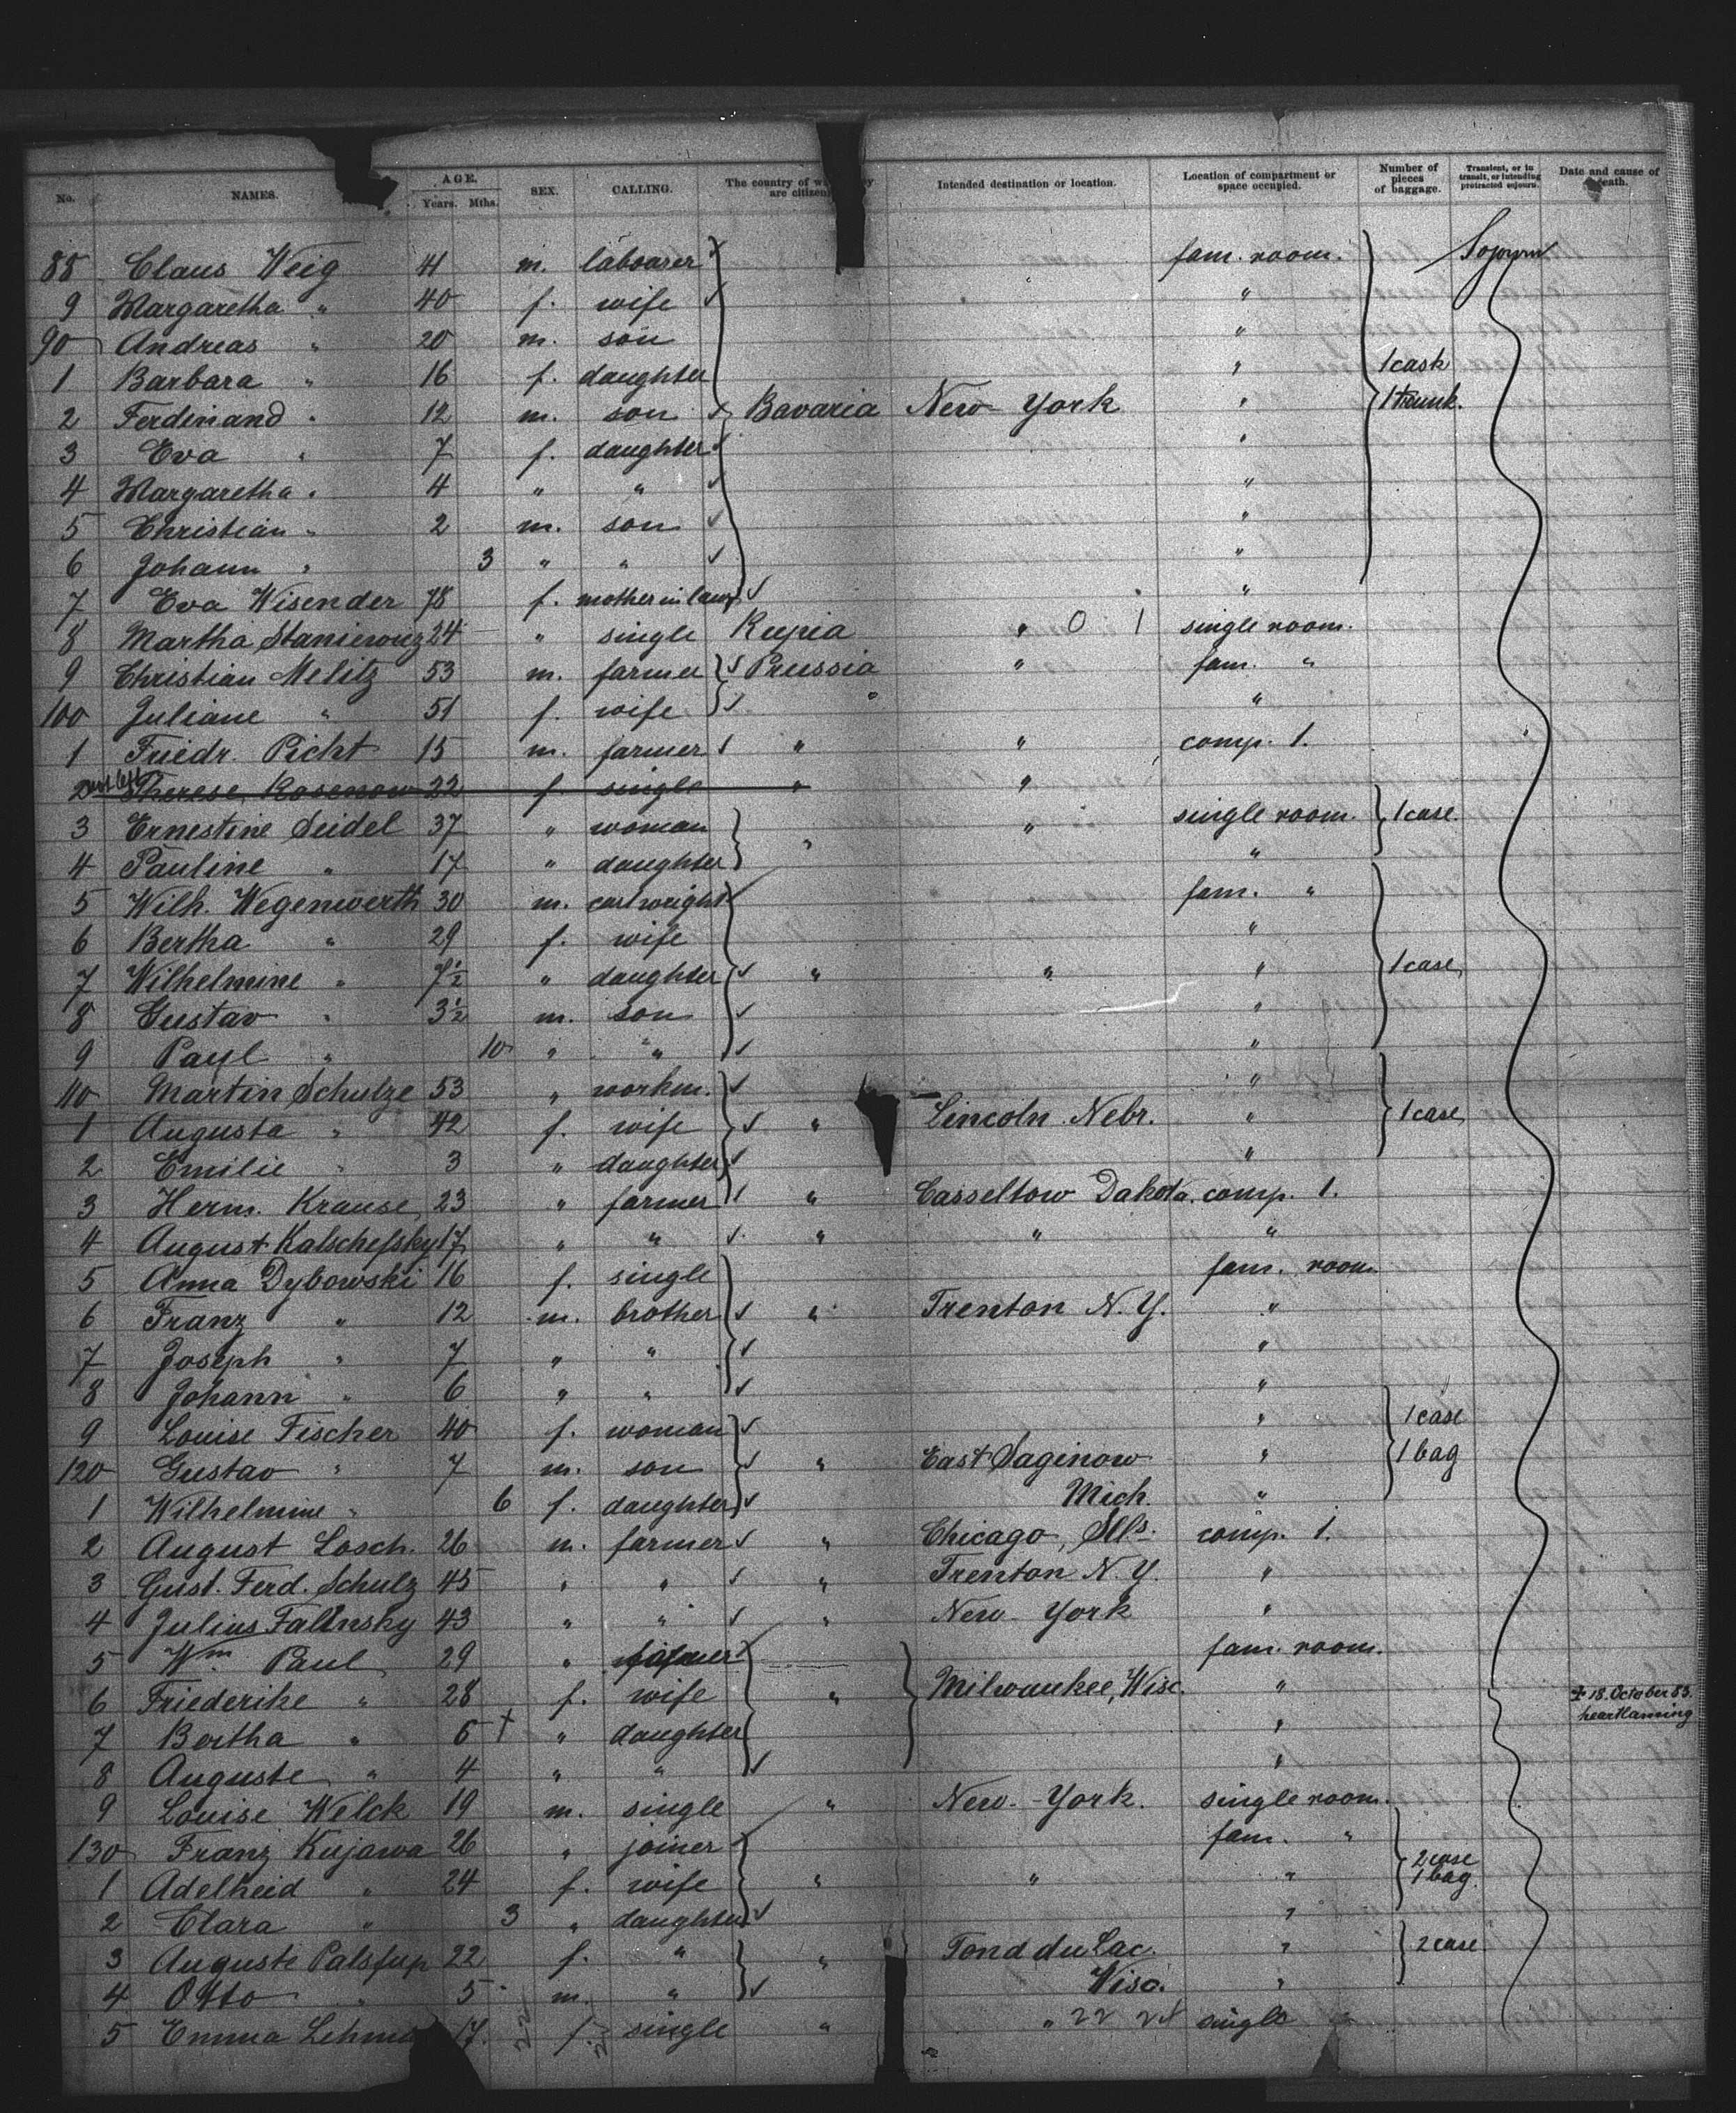 No. NAMES. AGE. Years. Mths. SEX. CALLING. The country of are citizen Intended destination or location. Location of compartment or space occupied. Number of pieces of baggage. Transient, or in transit, or intending protracted sojourn. Date and cause of death.
88 Claus Weig 41 m. labourer fam. room. Sojourn
9 Margaretha " 40 f. wife "
90 Andreas " 20 m. son "
1 Barbara " 16 f. daughter " 1 cask
2 Ferdinand " 12 m. son Bavaria New York " 1 trunk.
3 Eva " 7 f. daughter "
4 Margaretha " 4 " " "
5 Christian " 2 m. son "
6 Johann " 3 " " "
7 Eva Wisender 78 f. mother in law "
8 Martha 24 " single " 0 1 single room.
9 Christian Melitz 53 m. farmer Prussia " fam. "
100 Juliane " 51 f. wife "
1 Friedr. Picht 15 m. farmer " " comp. 1.
2 Therese Rosenow 22 f. single " "
3 Ernestine Seidel 37 " woman " " single room. 1 case.
4 Pauline " 17 " daughter "
5 Wilh. Wegenwerth 30 m. cartwright fam. "
6 Bertha " 29 f. wife "
7 Wilhelmine " 7½ " daughter " " " 1 case
8 Gustav " 3½ m. son "
9 Paul " 10 " " "
110 Martin Schulze 53 " workm. "
1 Augusta " 42 f. wife " Lincoln Nebr. " 1 case
2 Emilie " 3 " daughter "
3 Herm. Krause 23 " farmer " Casseltow Dakota. comp. 1.
4 August Kalschefsky 17 " " " " "
5 Anna Dybowski 16 f. single fam. room
6 Franz " 12 m. brother " Trenton N. Y. "
7 Joseph " 7 " " "
8 Johann " 6 " " "
9 Louise Fischer 40 f. woman " 1 case
120 Gustav " 7 m. son " East Saginow " 1 bag
1 Wilhelmine " 6 f. daughter Mich. "
2 August Losch. 26 m. farmer " Chicago, Ills. comp. 1.
3 Gust. Ferd. Schulz 45 " " " Trenton N. Y. "
4 Julius Falinsky 43 " " " New York "
5 Wm. Paul 29 " farmer fam. room.
6 Friederike " 28 f. wife " Milwaukee, Wisc. " † 18. October 83.
7 Bertha " 6 † " daughter "
8 Auguste " 4 " " "
9 Louise Welck 19 m. single " New-York. single room.
130 Franz Kujawa 26 " joiner fam. "
1 Adelheid " 24 f. wife " " " 2 case 1 bag.
2 Clara " 3 " daughter "
3 Auguste 22 f. " " Fond du Lac. " 2 case
4 Otto " 5 m. " Wisc. "
5 Emma 17. f. single " " 22 single